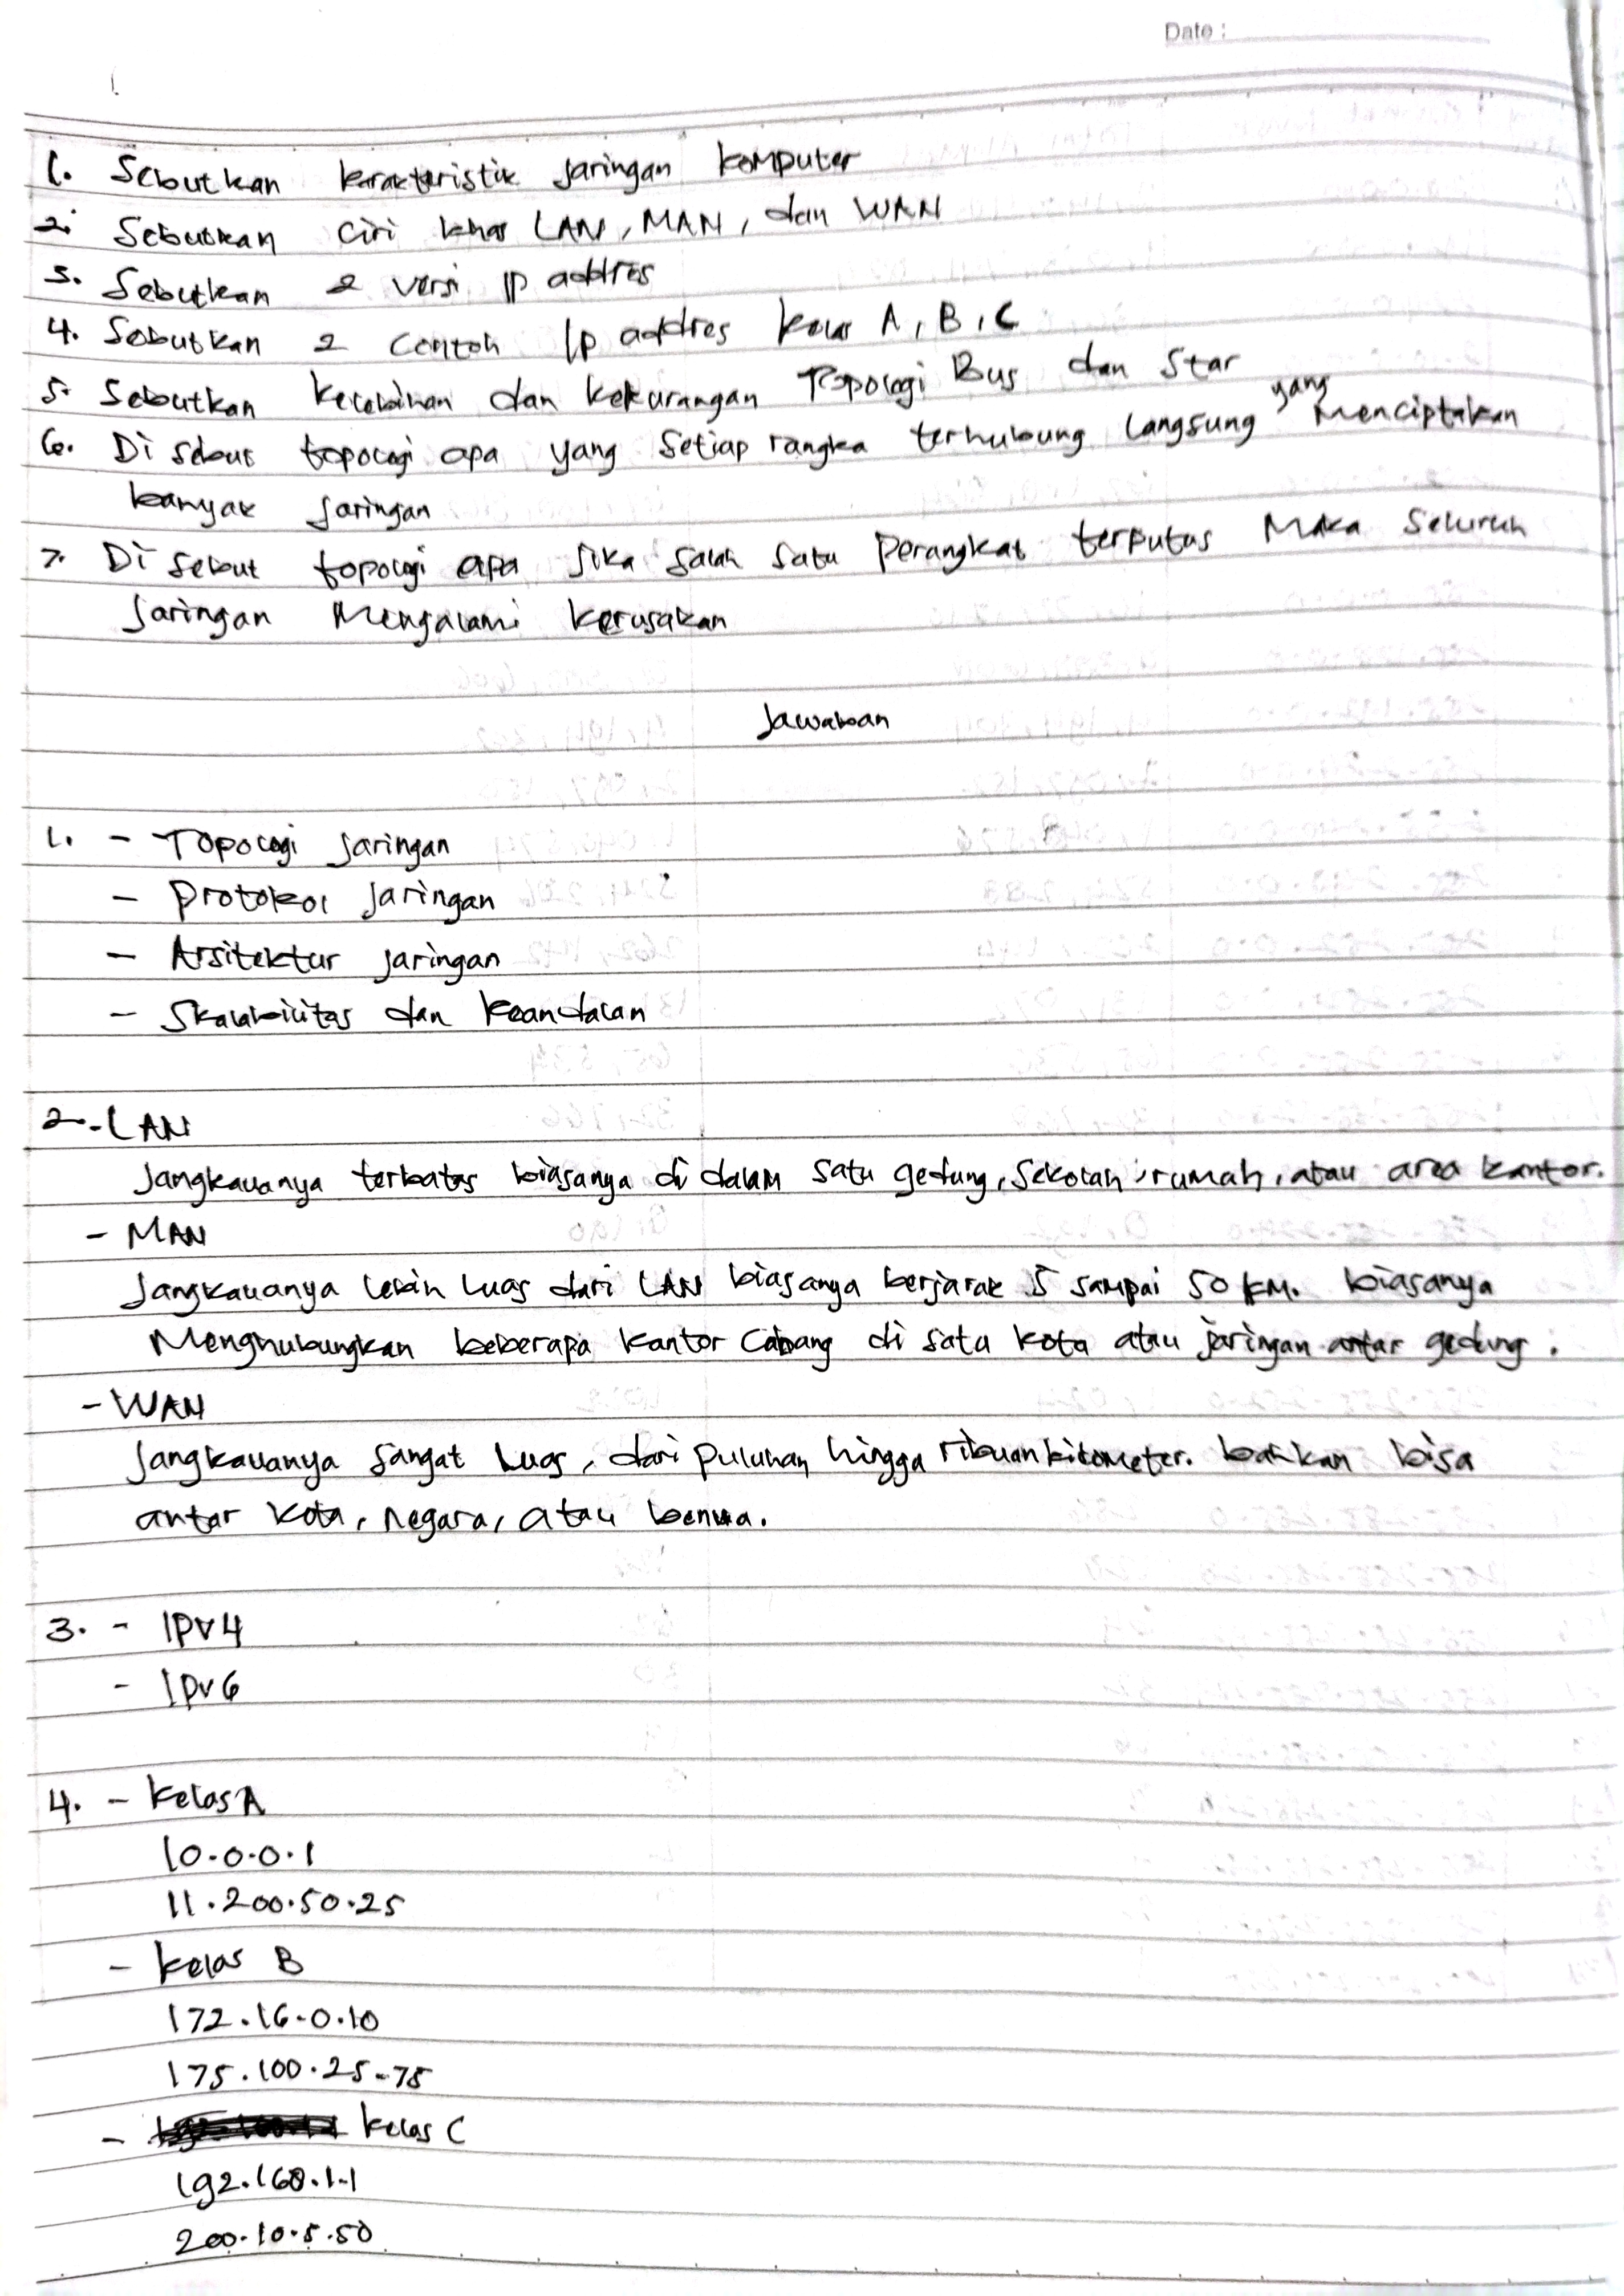 Date :
1. Sebutkan karakteristik jaringan komputer
2. Sebutkan Ciri khas LAN, MAN, dan WAN
3. Sebutkan 2 versi IP addres
4. Sebutkan 2 Contoh Ip addres kelas A, B, C
5. Sebutkan Kelebihan dan kekurangan Topologi Bus dan Star
6. Di sebut topologi apa yang Setiap rangka terhubung Langsung yang Menciptakan
banyak jaringan
7. Di sebut topologi apa jika salah satu Perangkat terputus Maka Seluruh
Jaringan Mengalami kerusakan
Jawaban
1. - Topologi jaringan
- Protokol jaringan
- Arsitektur jaringan
- Skalabilitas dan keandalan
2. - LAN
Jangkauanya terbatas biasanya di dalam satu gedung, sekolah, rumah, atau area kantor.
- MAN
Jangkauanya lebih Luas dari LAN biasanya berjarak 5 sampai 50 KM. biasanya
Menghubungkan beberapa kantor Cabang di satu kota atau jaringan antar gedung.
- WAN
Jangkauanya Sangat Luas, dari puluhan hingga ribuan kilometer. bahkan bisa
antar kota, negara, atau benua.
3. - IPv4
- IPv6
4. - Kelas A
10.0.0.1
11.200.50.25
- Kelas B
172.16.0.10
175.100.25.75
- kelas C
192.168.1.1
200.10.5.50